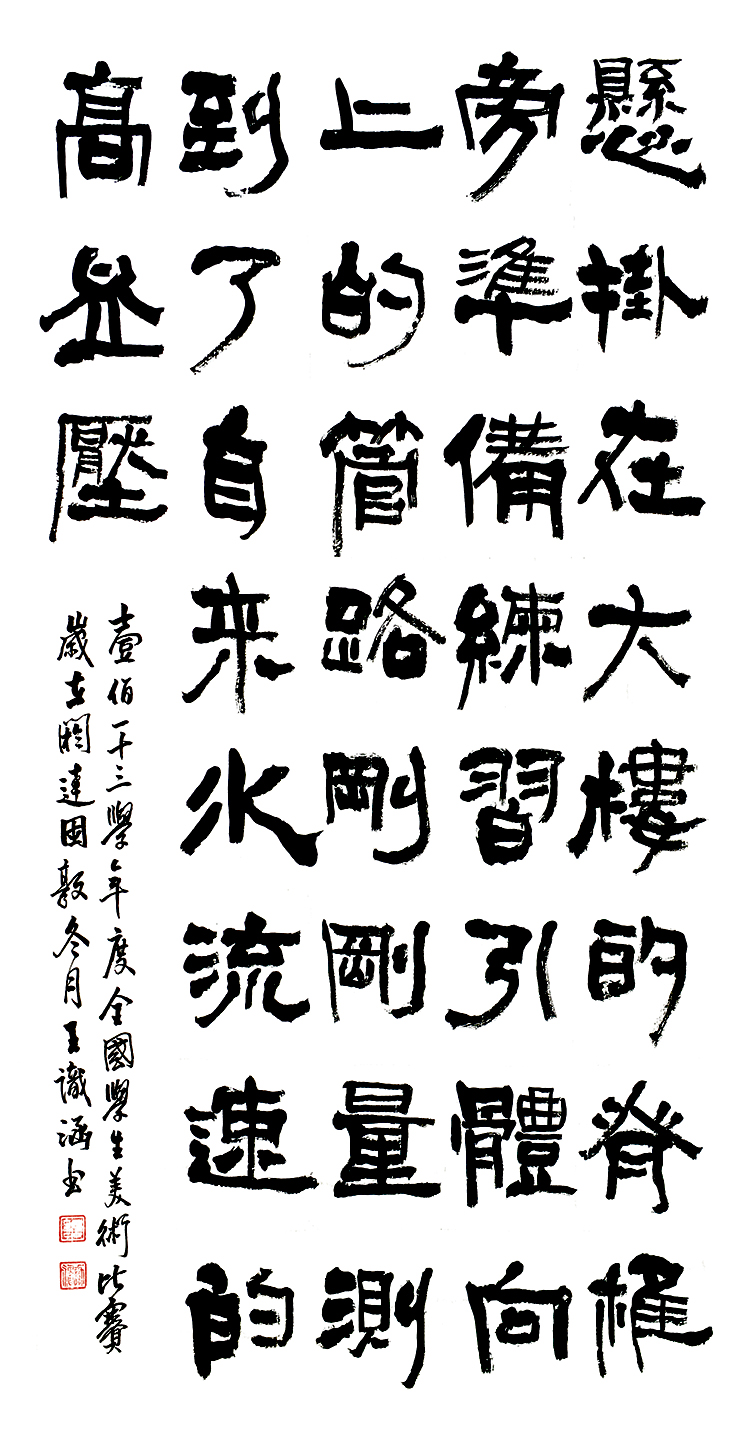 懸掛在大樓的脊椎
旁準備練習引體向
上的管路剛剛量測
到了自來水流速的
高並壓
壹佰一十三學年度全國學生美術比賽
歲在閼逢困敦冬月王識涵書